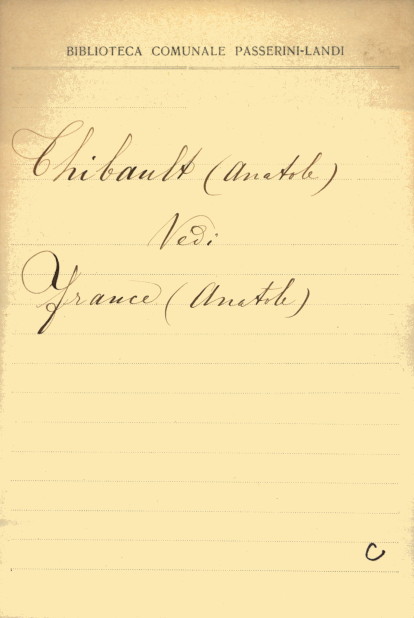 BIBLIOTECA COMUNALE PASSERINI-LANDI
Thibault (Anatole)
Vedi
France (Anatole)
C